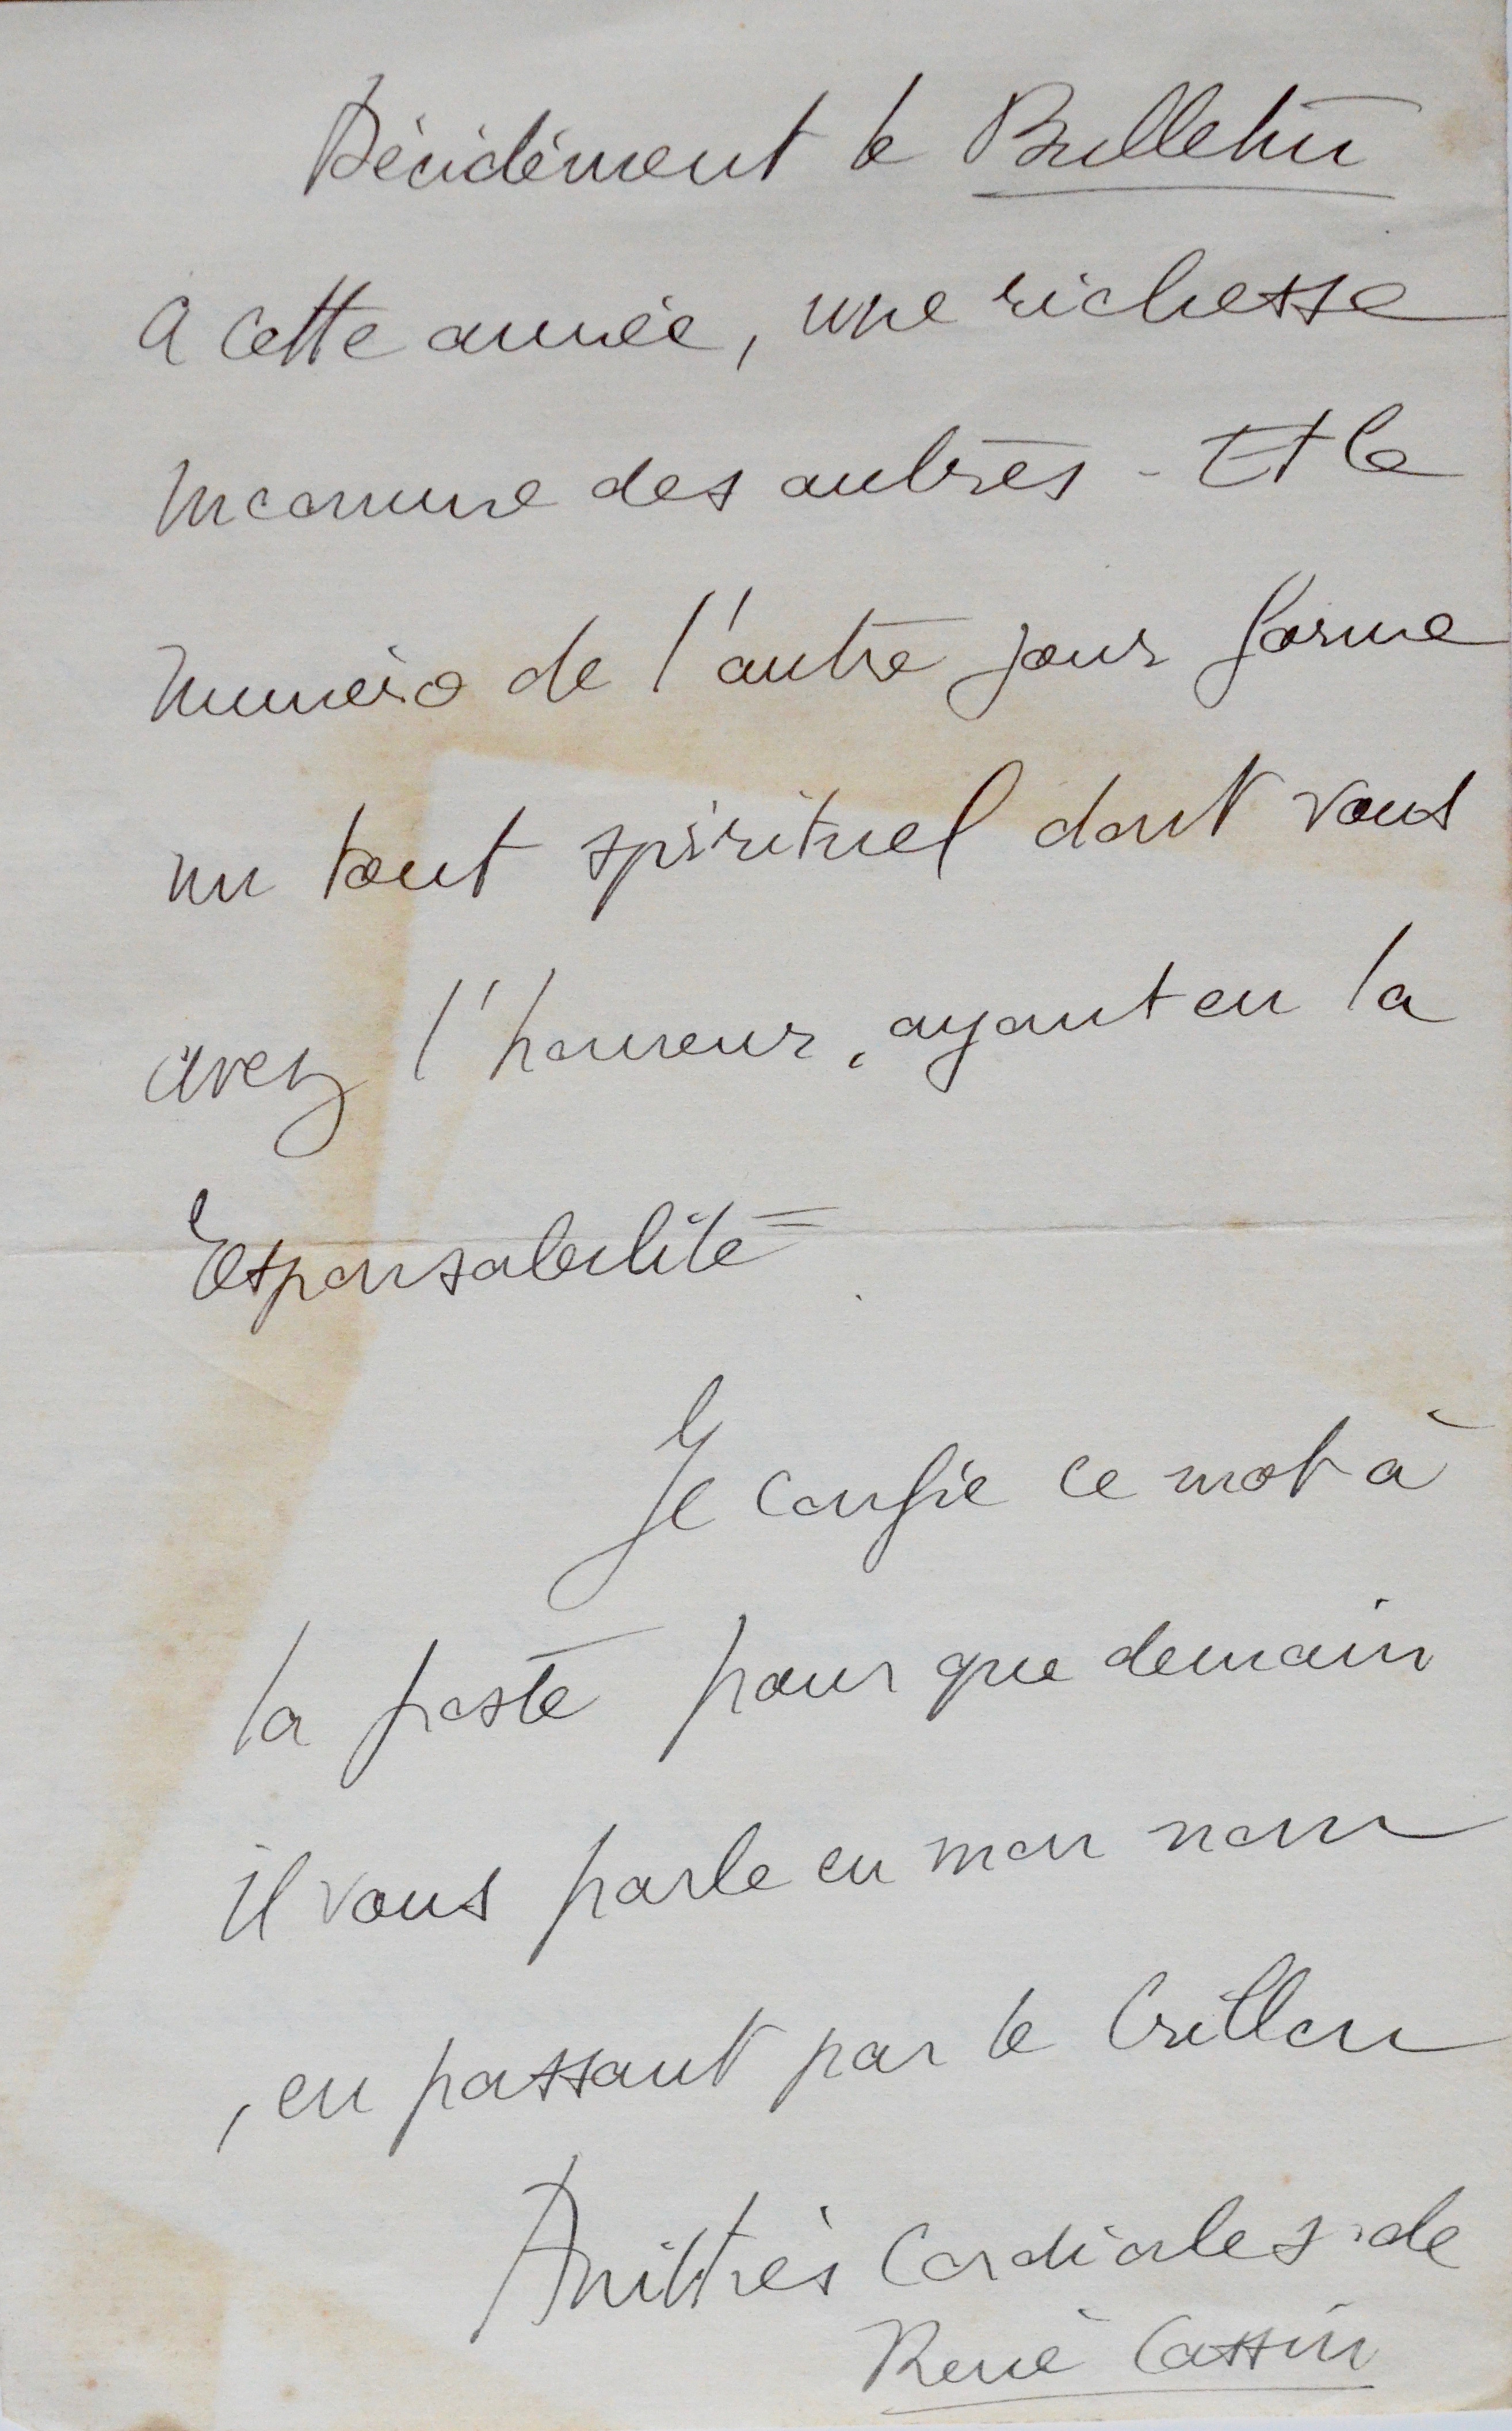 Décidément le Bulletin
a cette année, une richesse
inconnue des autres - Et le
numéro de l'autre jour forme
un tout spirituel dont vous
avez l'honneur, ayant eu la
responsabilité
Je confie ce mot à
la poste pour que demain
il vous parle en mon nom
, en passant par le Crillon
Amitiés Cordiales de
René Cassin